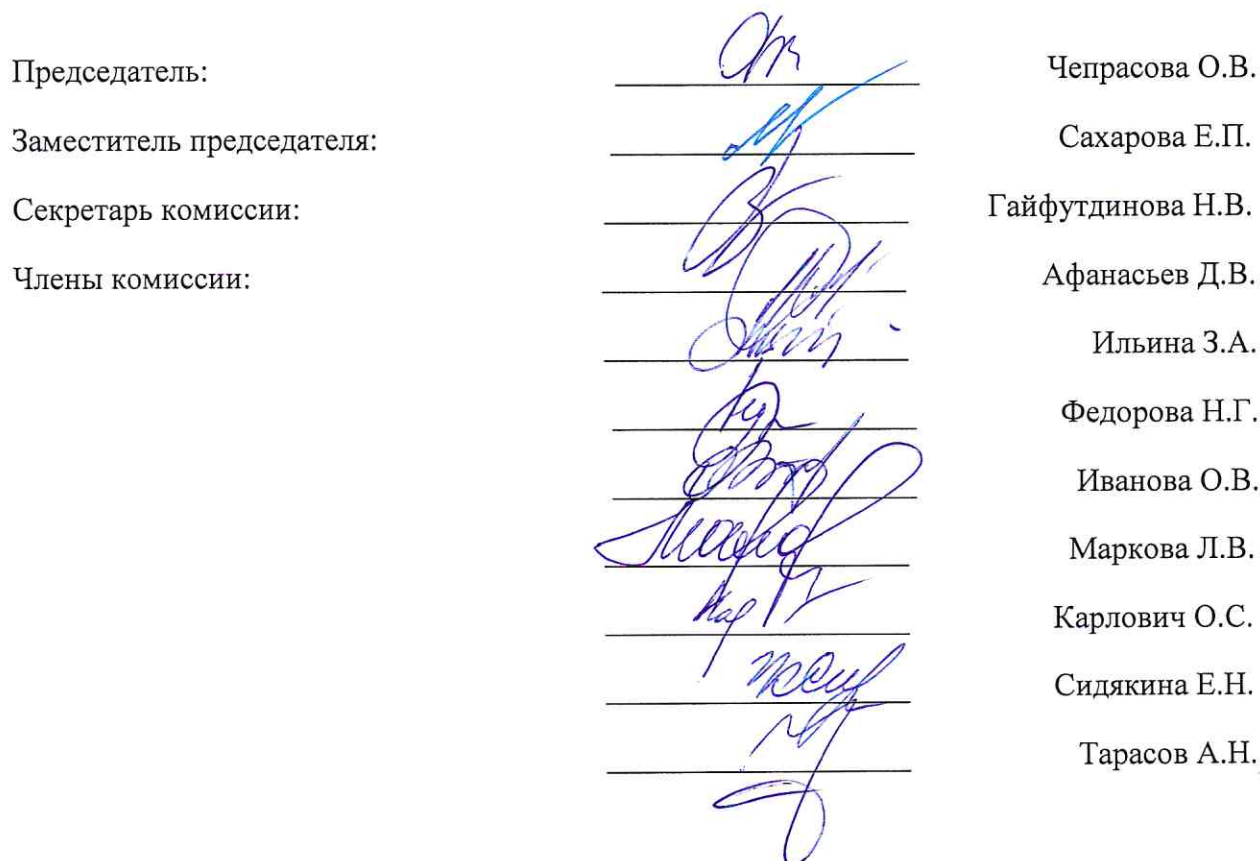 Председатель: Чепрасова О.В.
Заместитель председателя: Сахарова Е.П.
Секретарь комиссии: Гайфутдинова Н.В.
Члены комиссии: Афанасьев Д.В.
Ильина З.А.
Федорова Н.Г.
Иванова О.В.
Маркова Л.В.
Карлович О.С.
Сидякина Е.Н.
Тарасов А.Н.